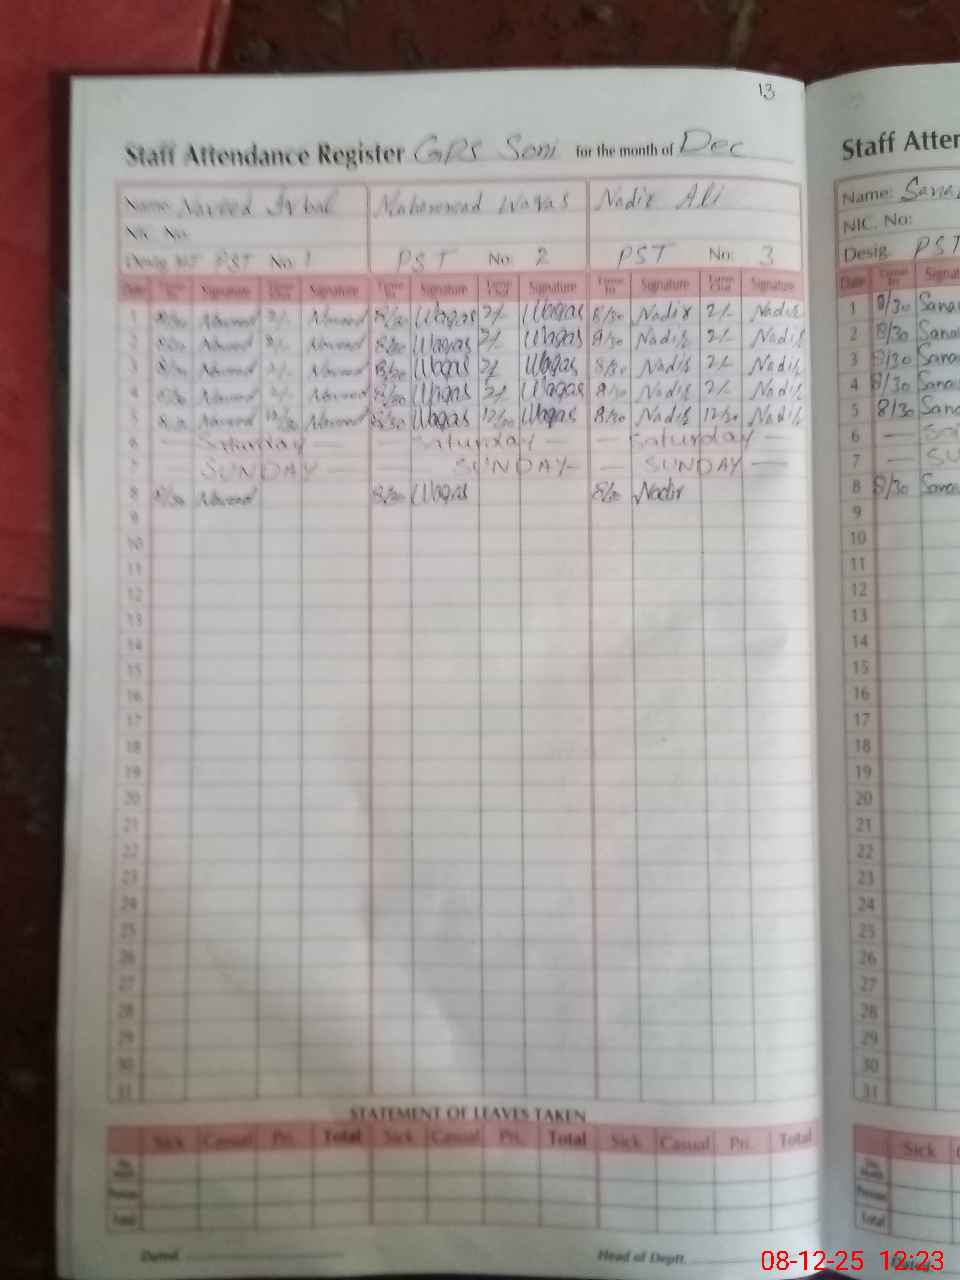 13
Staff Attendance Register GPS Soni for the month of Dec
Name: Naveed Iqbal Muhammad Waqas Nadir Ali
NIC. No.
Desig. PST No: 1 PST No: 2 PST No: 3
Date Time In Signature Time Out Signature Time In Signature Time Out Signature Time In Signature Time Out Signature
1 8/30 Naveed 2/- Naveed 8/30 Waqas 2/- Waqas 8/30 Nadir 2/- Nadir
2 8/30 Naveed 2/- Naveed 8/30 Waqas 2/- Waqas 8/30 Nadir 2/- Nadir
3 8/30 Naveed 2/- Naveed 8/30 Waqas 2/- Waqas 8/30 Nadir 2/- Nadir
4 8/30 Naveed 2/- Naveed 8/30 Waqas 2/- Waqas 8/30 Nadir 2/- Nadir
5 8/30 Naveed 12/30 Naveed 8/30 Waqas 12/30 Waqas 8/30 Nadir 12/30 Nadir
6 — Saturday — — Saturday — — Saturday —
7 — SUNDAY — — SUNDAY — — SUNDAY —
8 8/30 Naveed 8/30 Waqas 8/30 Nadir
9
10
11
12
13
14
15
16
17
18
19
20
21
22
23
24
25
26
27
28
29
30
31
STATEMENT OF LEAVES TAKEN
Sick Casual Pri. Total Sick Casual Pri. Total Sick Casual Pri. Total
This Month
Previous
Total
Dated Head of Deptt.
Staff Atten
Name: Sana
NIC. No:
Desig. PST
Date Time In Signat
1 8/30 Sana
2 8/30 Sana
3 8/30 Sana
4 8/30 Sana
5 8/30 Sana
6 —
7 — SU
8 8/30 Sana
9
10
11
12
13
14
15
16
17
18
19
20
21
22
23
24
25
26
27
28
29
30
31
Sick
This Month
Previous
Total
08-12-25 12:23